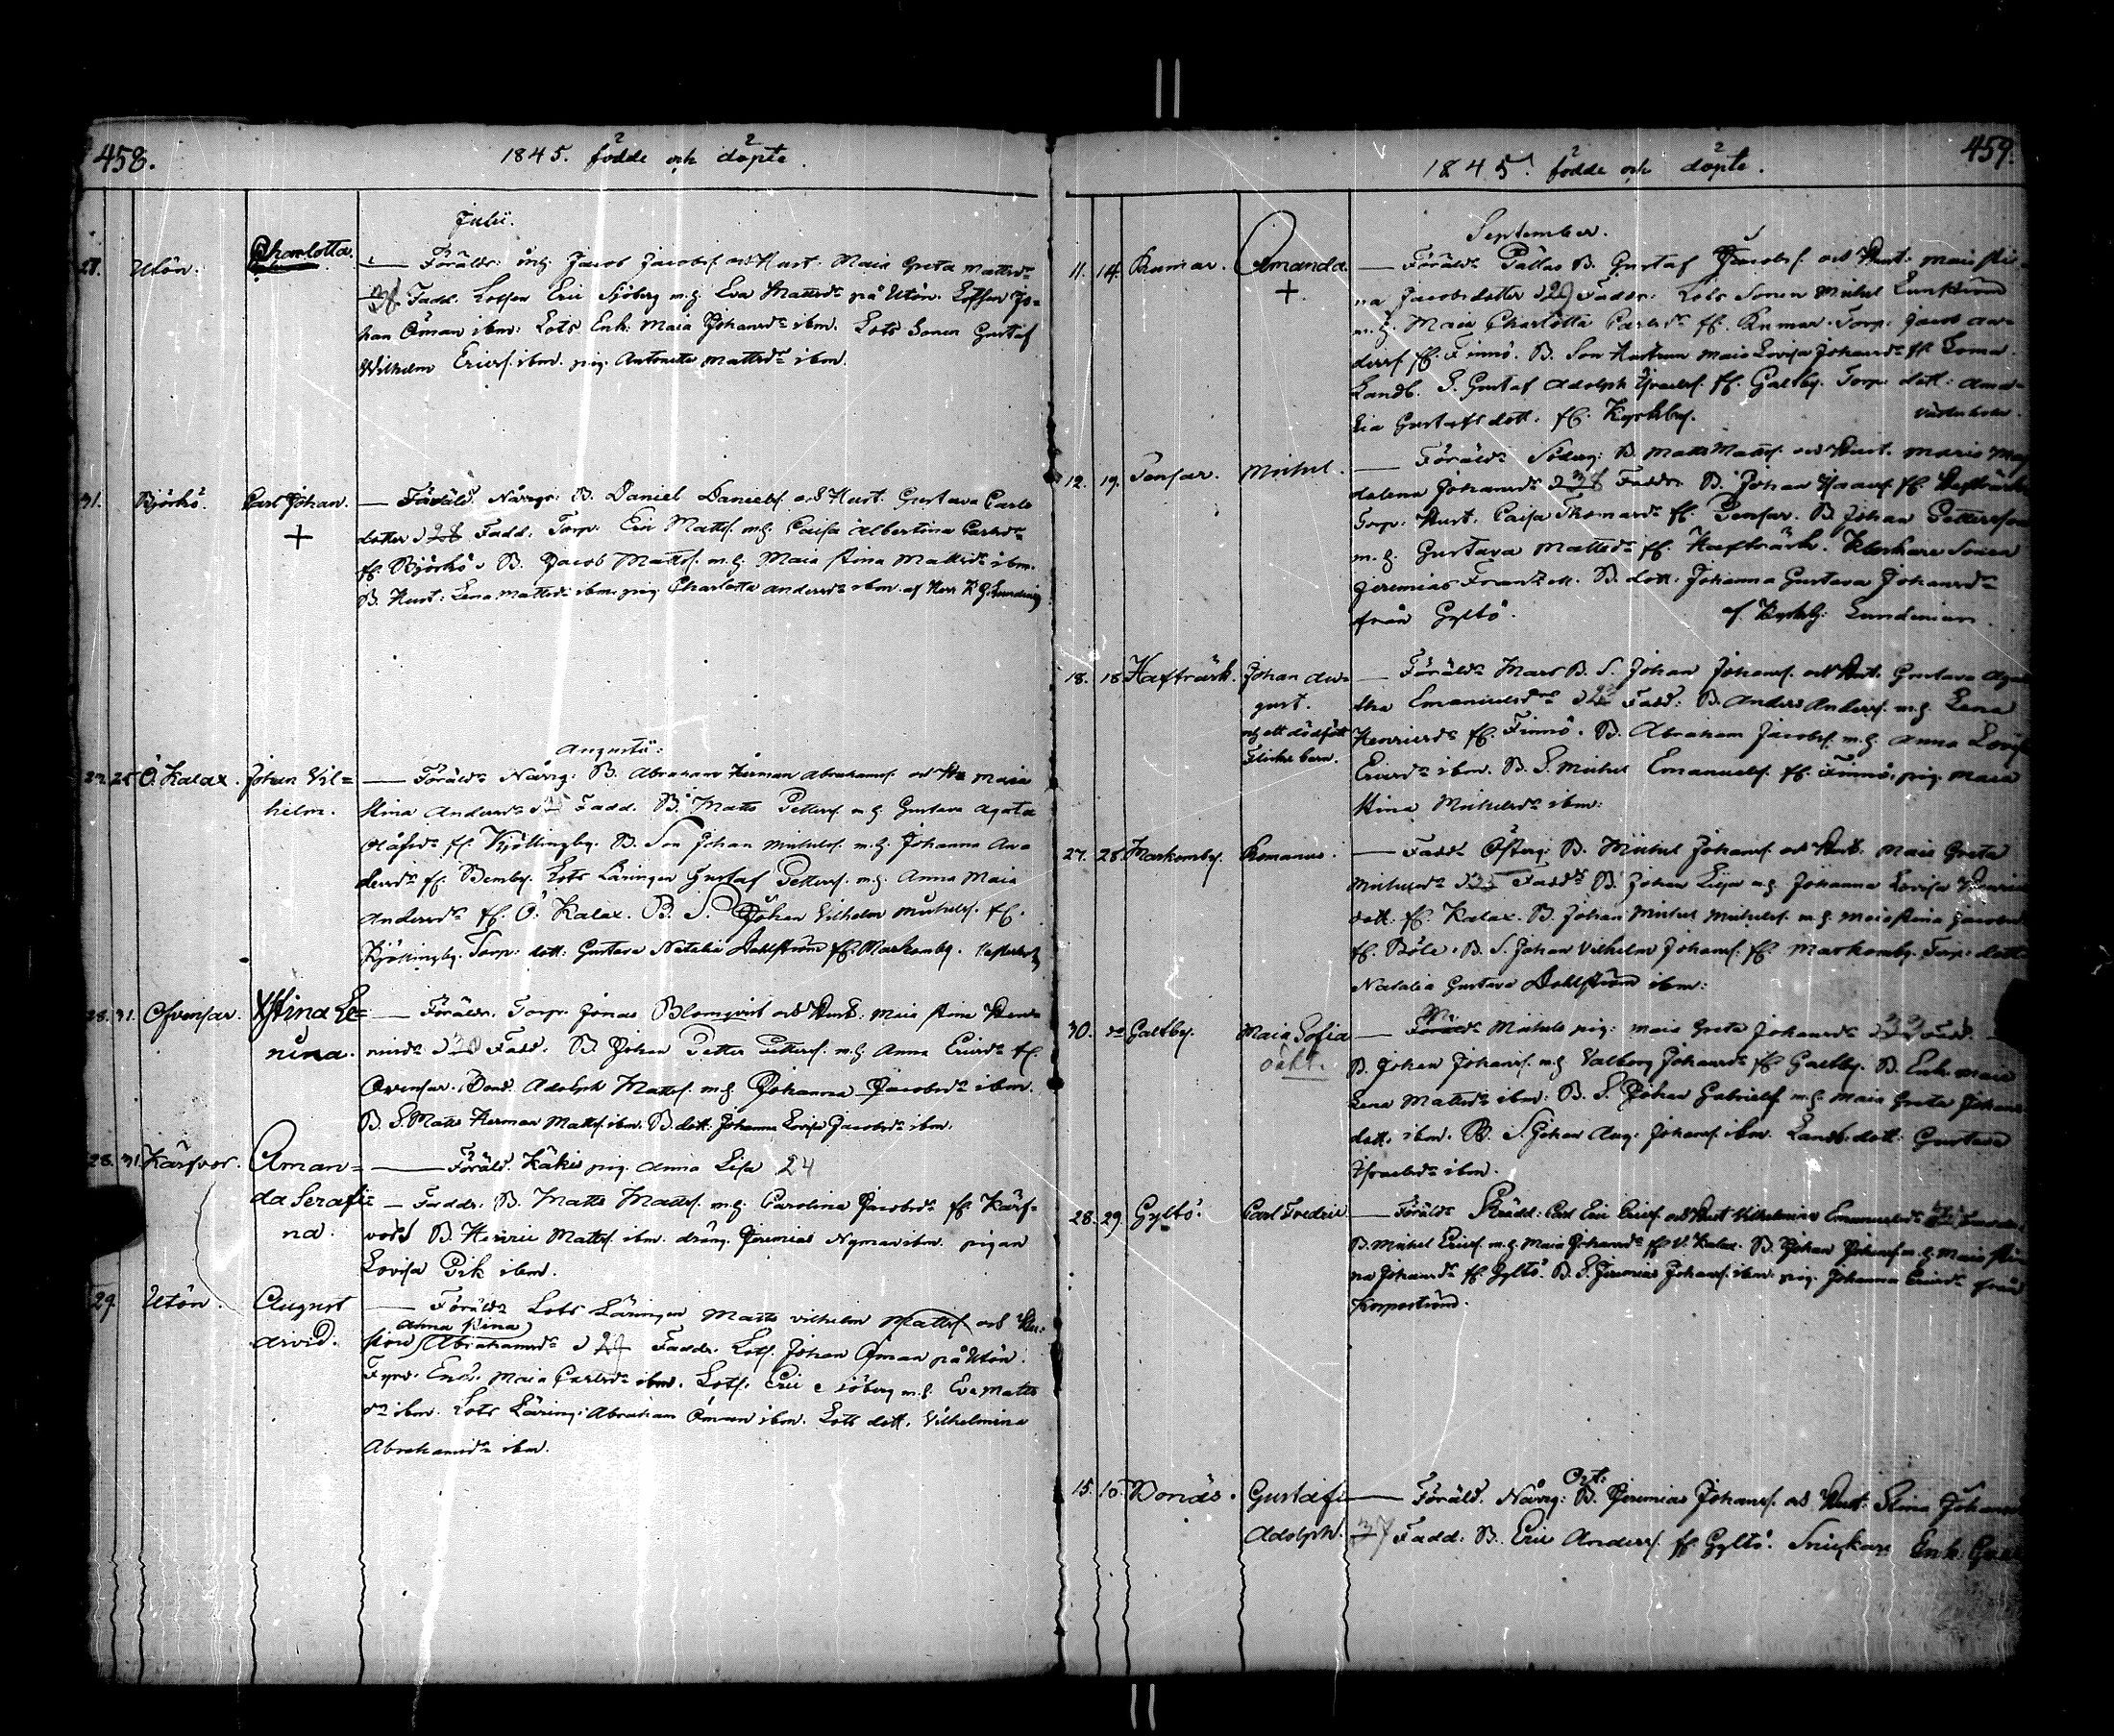 458.
1845. födde och döpte.
Julii.
27. Utön. Charlotta. — Föräldr: inh: Jacob Jacobss. och Hust. Maia Greta Mattsdr
38 Fadd. Lotsen Eric Sjöberg m. h. Eva Mattsdr på Utön. Lotsen Jo=
han Öman ibm: Lots Enk: Maia Johansdr ibm. Lots Sonen Gustaf
Wilhelm Ericss. ibm. pig. Antonetta Mattsdr ibm.
31. Björkö. Carl Johan. — Föräld. Nårrgr: B. Daniel Danielss. och Hust. Gustava Carls
+ dotter 28 Fadd. Torp. Eric Mattss. m. h. Caisa Albertina Carlsdr
fr. Björkö. B. Jacob Mattss. m. h. Maia Stina Mattsdr ibm.
B. Hust: Lena Mattsdr ibm. pig. Charlotta Andersdr ibm. af Herr
Augustii:
25 Ö. Kalax. Johan Vil= — Föräldr Nårrg: B. Abraham Herman Abrahamss. och Maia
helm. Stina Andersdr Fadd. B. Matts Petterss. m. h. Gustava Agata
fr. Kjöttingby. B. Son Johan Michelss. m. h. Johanna An=
dersdr fr. Benby. Lots Läringen Gustaf Petterss. m. h. Anna Maia
Andersdr fr. Ö. Kalax. B. S. Johan Vilhelm Michelss. fr.
Kjöttingby. Torp: dott: Gustava Natalia Dahlström fr. Markomby.
28. 31. Ofvensar. Xstina Le= — Föräldr. Torp. Jonas Blomqvist och Hust: Maia Stina Hen=
nina. ricsdr 30 Fadd. B. Johan Petter Petterss. m. h. Anna Ericsdr fr.
Ovensar. Bond. Adolph Mattss. m. h. Johanna Jacobsdr ibm.
B. S. Matts Herman Mattss. ibm. B. dott. Johanna Lovisa Jacobsdr ibm.
28. 31. Kärfvor. Aman= — Föräld. Käkis pig. Anna Lisa 24
da Serafi= — Faddr. B. Matts Mattss. m. h. Carolina Jacobsdr fr. Kärf=
na. B. Henric Mattss. ibm. dräng. Jeremias Nyman ibm. pigan
Lovisa Pik ibm.
29. Utön. August — Föräldr Lots Läringen Matts Vilhelm Mattss. och Hu=
Anna Stina
Arvid. Abrahamsdr 29 Faddr. Lots. Johan Öman på Utön.
Enk. Maia Carlsdr ibm. Lots. Eric Sjöberg m. h. Eva Matts
dr ibm. Lots Läring: Abraham Öman ibm. Lots dott. Vilhelmina
Abrahamsdr ibm.
459.
1845. födde och döpte.
September.
11. 14. Rumar. Amanda. — Föräldr Pällas B. Gustaf Jacobss. och Hust: Maia Sti=
+ na Jacobsdotter 29 Faddr: Lots Sonen Michel Lundström
m. h. Maia Charlotta Carlsdr fr. Rumar. Torp. Jacob An=
derss. fr. Finnö. B. Son Hustrun Maia Lovisa Johansdr fr. Loma.
Landb. S. Gustaf Adolph Israelss. fr. Galtby. Torp. dott: Ama=
lia Gustafsdott. fr. Kyrkby.
12. 19. Pensar. Michel. — Föräldr Söderg: B. Matts Mattss. och Hust. Maria Mag
dalena Johansdr 38 Faddr. B. Johan Isaacss. fr.
Torp. Hust. Caisa Thomasdr fr. Pensar. B. Johan Pettersson
m. h. Gustava Mattsdr fr. Hafträsk. Klockare Sonen
Jeremias B. dott. Johanna Gustava Johansdr
från Gyltö. af Kyrkh: Lundenius.
18. 18 Hafträsk. Johan Au= — Föräldr Mars B. S. Johan Johanss. och Hust. Gustava Aga
gust. tha Emanuelsdr 23 Fadd: B. Anders Anderss. m. h. Lena
och ett dödfött Henricsdr fr. Finnö. B. Abraham Jacobss. m. h. Anna Lovisa
Flicke barn. Ericsdr ibm. B. S. Michel Emanuelss. fr. Finnö, pig. Maia
Stina Michelsdr ibm:
27. 28. Markomby. Romanus. — Fadd. Österg: B. Michel Johanss. och Hust. Maia Greta
Michelsdr 35 Faddr B. Johan Lilja m. h. Johanna Lovisa Henrics
dott. fr. Kalax. B. Johan Michel Michelss. m. h. Maia Stina Jacobsdr
fr. Böle. B. S. Johan Vilhelm Johanss. fr. Markomby. Torp: dott.
Natalia Gustava Dahlström ibm:
30. Galtby. Maia Sofia — Michels pig: Maia Greta Johansdr 33 Fadd.
oäkt. B. Johan Johanss. m. h. Valborg Johansdr fr. Galtby. B. Enk. Maia
Lena Mattsdr ibm: B. S. Johan Gabrielss. m. h. Maia Greta Johans
dott. ibm. B. S. Johan Aug. Johanss. ibm. Landb. dott: Gustava
Israelsdr ibm.
28. 29. Gyltö. Carl Fredric. — Föräldr Skrädd: Carl Eric Ericss. och Hust Vilhelmina Emanuelsdr
B. Michel Ericss. m. h. Maia Johansdr fr. V. Kalax. B. Johan Johanss. m. h. Maia Sti
na Johansdr fr. Gyltö. B. S. Jeremias Johanss. ibm. pig. Johanna Ericsdr från
Korpoström.
Oct:
15. Gustaf — Föräld. Nårrg: B. Jeremias Johanss. och Hust: Stina Johans
Adolph. 37 Fadd: B. Eric Anderss. fr. Gyltö. Snickare Enk.